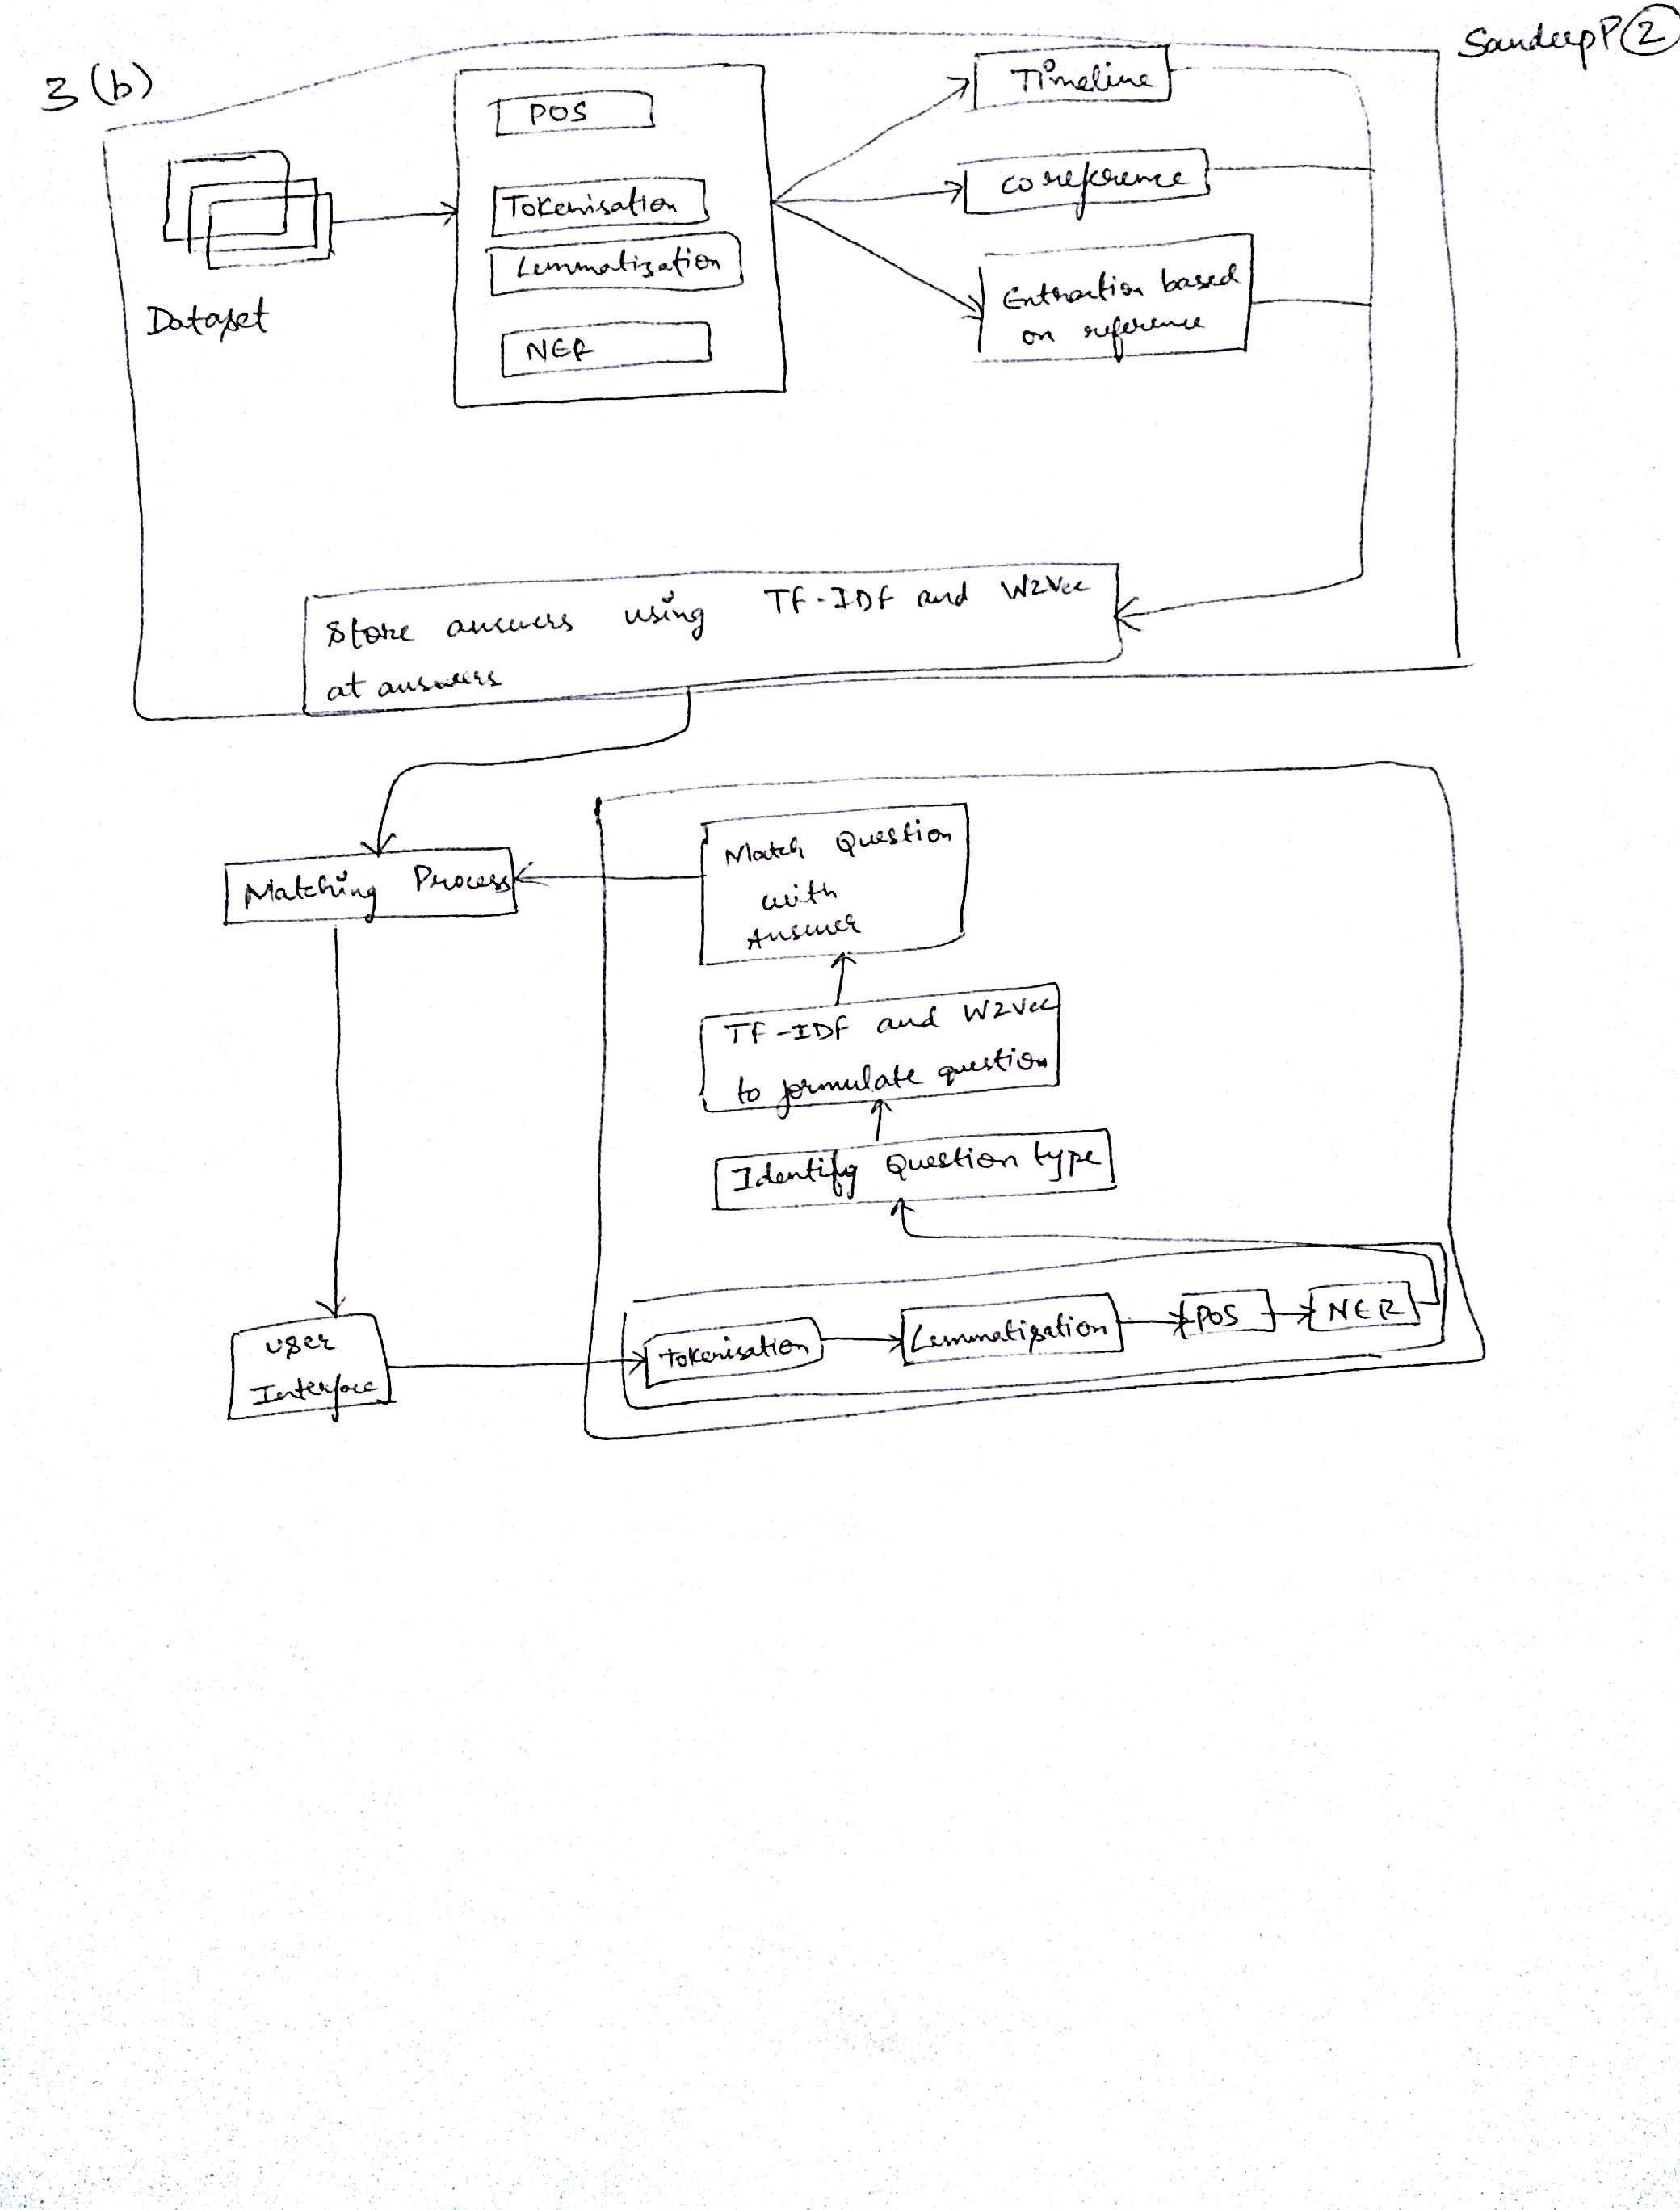 SandeepP 2
3 (b)
POS
Tokenisation
Lemmatization
NER
Dataset
Timeline
coreference
Extraction based
on reference
Store answers using TF-IDF and W2Vec
at answers
Matching Process
Match Question
with
Answer
TF-IDF and W2Vec
to formulate question
Identify Question type
Tokenisation
Lemmatisation
POS
NER
User
Interface